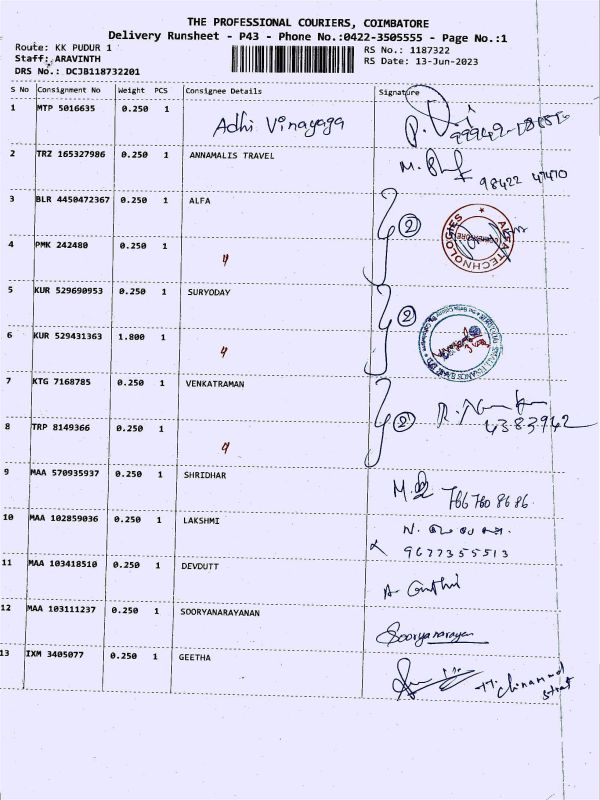 THE PROFESSIONAL COURIERS, COIMBATORE
Delivery Runsheet - P43 - Phone No.:0422-3505555 - Page No.:1
Route: KK PUDUR 1 RS No.: 1187322
Staff: ARAVINTH RS Date: 13-Jun-2023
DRS No.: DCJB118732201
S No Consignment No Weight PCS Consignee Details Signature
1 MTP 5016635 0.250 1 Adhi Vinayaga
2 TRZ 165327986 0.250 1 ANNAMALIS TRAVEL
98422 47470
3 BLR 4450472367 0.250 1 ALFA
2
ALFA TECHNOLOGIES
4 PMK 242480 0.250 1 "
5 KUR 529690953 0.250 1 SURYODAY
2
6 KUR 529431363 1.800 1 "
7 KTG 7168785 0.250 1 VENKATRAMAN
2
4383942
8 TRP 8149366 0.250 1 "
9 MAA 570935937 0.250 1 SHRIDHAR
766 760 8686
10 MAA 102859036 0.250 1 LAKSHMI
9677355513
11 MAA 103418510 0.250 1 DEVDUTT
12 MAA 103111237 0.250 1 SOORYANARAYANAN
Sooryanarayan
13 IXM 3405077 0.250 1 GEETHA